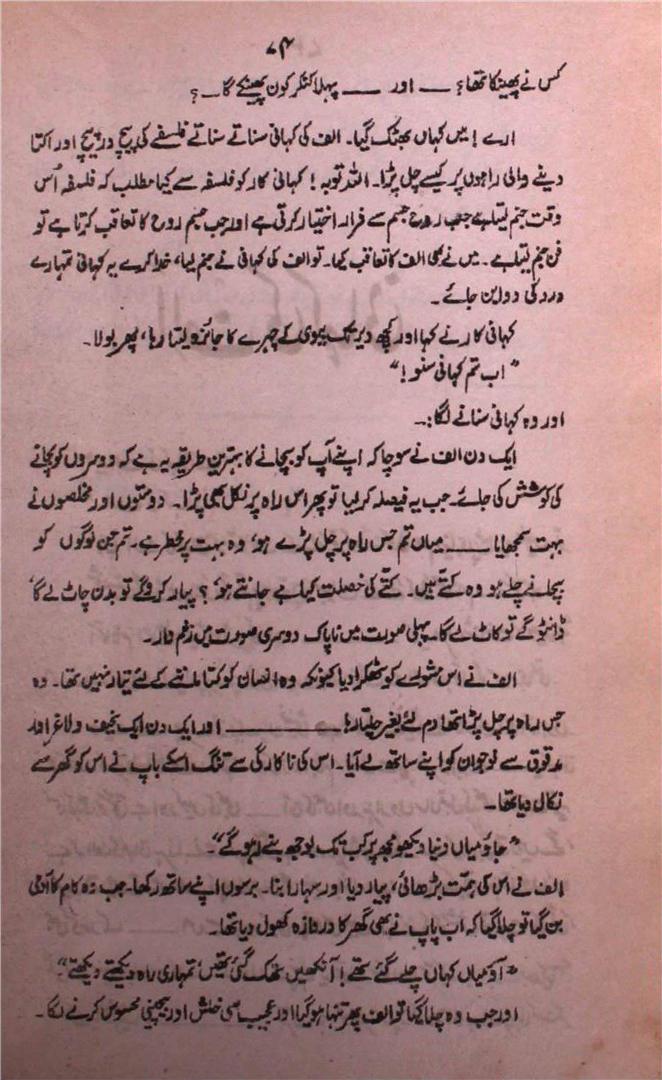 ۷۴
کس نے پھینکا تھا؟ ــــ اور ــــ پہلا کنکر کون پھینکے گا ــ ؟
ارے! میں کہاں بھٹک گیا۔ الف کی کہانی سناتے سناتے فلسفے کی پیچ در پیچ اور اکتا
دینے والی راہوں پر کیسے چل پڑا۔ اللہ توبہ! کہانی کار کو فلسفہ سے کیا مطلب کہ فلسفہ اُس
وقت جنم لیتا ہے جب روح جسم سے فرار اختیار کرتی ہے اور جب جسم روح کا تعاقب کرتا ہے تو
فن جنم لیتا ہے۔ میں نے بھی الف کا تعاقب کیا۔ تو الف کی کہانی نے جنم لیا، خدا کرے یہ کہانی تمہارے
درد کی دوا بن جائے۔
کہانی کار نے کہا اور کچھ دیر تک بیوی کے چہرے کا جائزہ لیتا رہا، پھر بولا۔
"اب تم کہانی سنو!"
اور وہ کہانی سنانے لگا:۔
ایک دن الف نے سوچا کہ اپنے آپ کو بچانے کا بہترین طریقہ یہ ہے کہ دوسروں کو بچانے
کی کوشش کی جائے۔ جب یہ فیصلہ کر لیا تو پھر اس راہ پر نکل بھی پڑا۔ دوستوں اور مخلصوں نے
بہت سمجھایا ــــ میاں تم جس راہ پر چل پڑے ہو، وہ بہت پرخطر ہے۔ تم جن لوگوں کو
بچانے چلے ہو وہ کتے ہیں۔ کتے کی خصلت کیا ہے جانتے ہو؟ پیار کرو گے تو بدن چاٹ لے گا،
ڈانٹو گے تو کاٹ لے گا۔ پہلی صورت میں ناپاک دوسری صورت میں زخم دار۔
الف نے اس مشورے کو ٹھکرا دیا کیونکہ وہ انسان کو کتا ماننے کے لئے تیار نہیں تھا۔ وہ
جس راہ پر چل پڑا تھا دم لئے بغیر چلتا رہا ــــــــــ اور ایک دن ایک نحیف و لاغر اور
مدقوق سے نوجوان کو اپنے ساتھ لے آیا۔ اس کی ناکارگی سے تنگ اسکے باپ نے اس کو گھر سے
نکال دیا تھا۔
"جاؤ میاں دنیا دیکھو مجھ پر کب تک بوجھ بنے رہو گے"۔
الف نے اس کی ہمت بڑھائی، پیار دیا اور سہارا بنا۔ برسوں اپنے ساتھ رکھا۔ جب وہ کام کا آدمی
بن گیا تو چلا گیا کہ اب باپ نے بھی گھر کا دروازہ کھول دیا تھا۔
"آؤ میاں کہاں چلے گئے تھے! آنکھیں تھک گئی تھیں، تمہاری راہ دیکھتے دیکھتے"۔
اور جب وہ چلا گیا تو الف پھر تنہا ہو گیا اور عجیب سی خلش اور بیچینی محسوس کرنے لگا۔